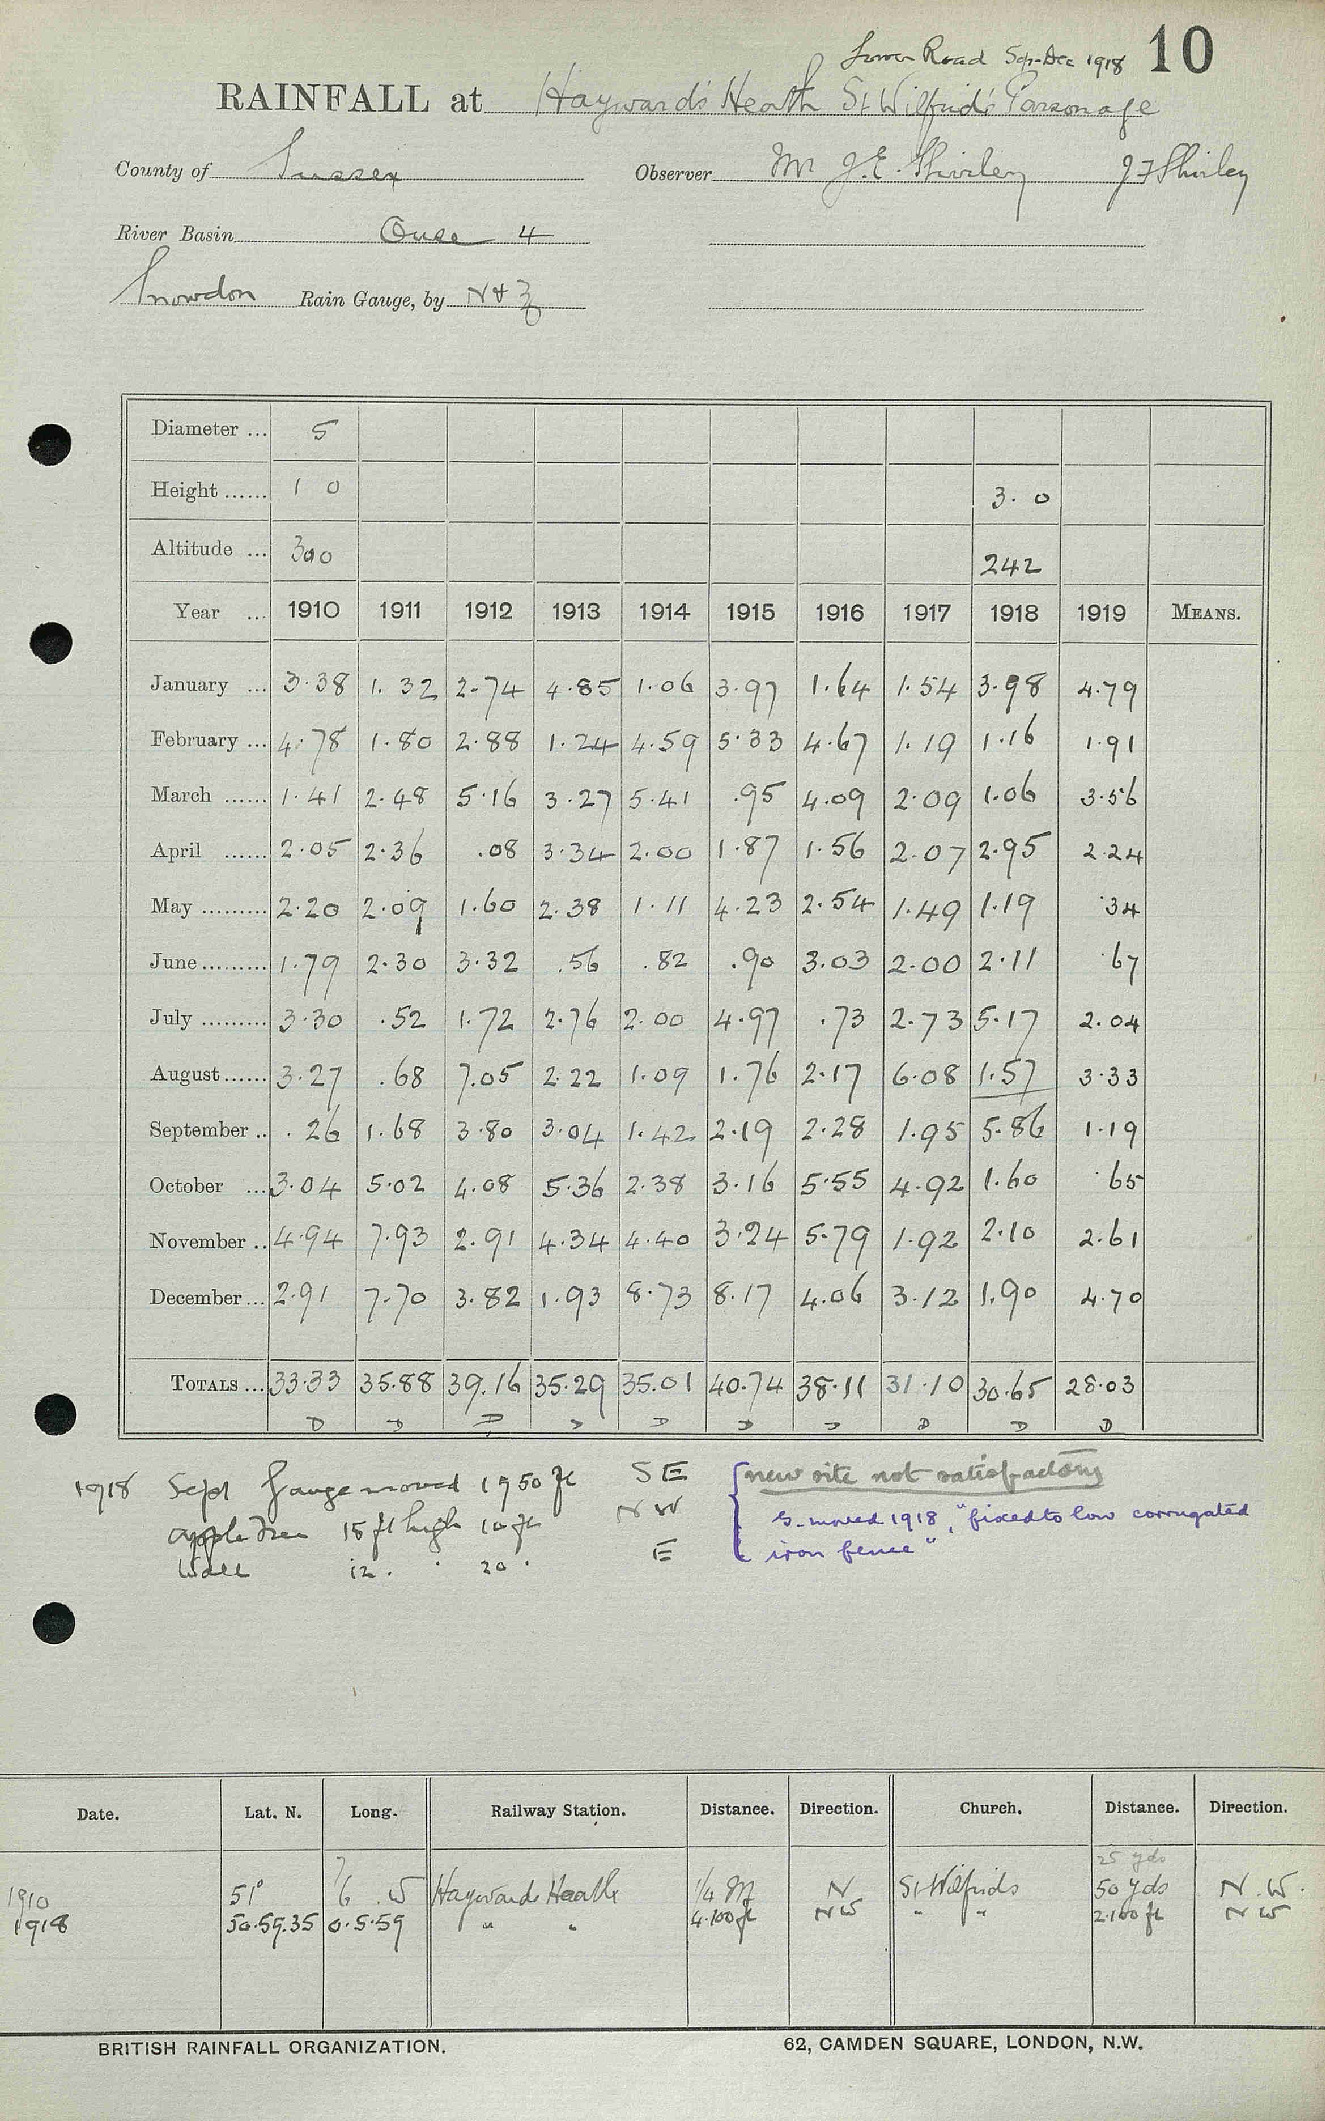 Lower Road Sep-Dec 1918 10
RAINFALL at Haywards Heath St Wilfrid's Parsonage
County of Sussex Observer Mr J.E. Shirley J F Shirley
River Basin Ouse 4
Snowdon Rain Gauge, by N & Z
Diameter ... 5
Height ...... 1 0 3. 0
Altitude ... 300 242
Year ... 1910 1911 1912 1913 1914 1915 1916 1917 1918 1919 MEANS.
January ... 3.38 1.32 2.74 4.85 1.06 3.97 1.64 1.54 3.98 4.79
February ... 4.78 1.80 2.88 1.24 4.59 5.33 4.67 1.19 1.16 1.91
March ...... 1.41 2.48 5.16 3.27 5.41 .95 4.09 2.09 1.06 3.56
April ...... 2.05 2.36 .08 3.34 2.00 1.87 1.56 2.07 2.95 2.24
May ......... 2.20 2.09 1.60 2.38 1.11 4.23 2.54 1.49 1.19 .34
June ......... 1.79 2.30 3.32 .56 .82 .90 3.03 2.00 2.11 .67
July ......... 3.30 .52 1.72 2.76 2.00 4.97 .73 2.73 5.17 2.04
August ...... 3.27 .68 7.05 2.22 1.09 1.76 2.17 6.08 1.57 3.33
September .. .26 1.68 3.80 3.04 1.42 2.19 2.28 1.95 5.86 1.19
October ... 3.04 5.02 4.08 5.36 2.38 3.16 5.55 4.92 1.60 .65
November .. 4.94 7.93 2.91 4.34 4.40 3.24 5.79 1.92 2.10 2.61
December ... 2.91 7.70 3.82 1.93 8.73 8.17 4.06 3.12 1.90 4.70
TOTALS ... 33.33 35.88 39.16 35.29 35.01 40.74 38.11 31.10 30.65 28.03
D D D D D D D D D D
1918 Sept Gauge moved 1950 ft SE new site not satisfactory
apple tree 15 ft high 10 ft NW G. moved 1918, "fixed to low corrugated
Wall 12 . . 20 . E iron fence"
Date. Lat. N. Long. Railway Station. Distance. Direction. Church. Distance. Direction.
7 25 yds
1910 51° 6 W Haywards Heath 1/4 M N St Wilfrids 50 yds N.W.
1918 50.59.35 0.5.59 " " 4.100 ft NW " " 2.100 ft NW
BRITISH RAINFALL ORGANIZATION. 62, CAMDEN SQUARE, LONDON, N.W.